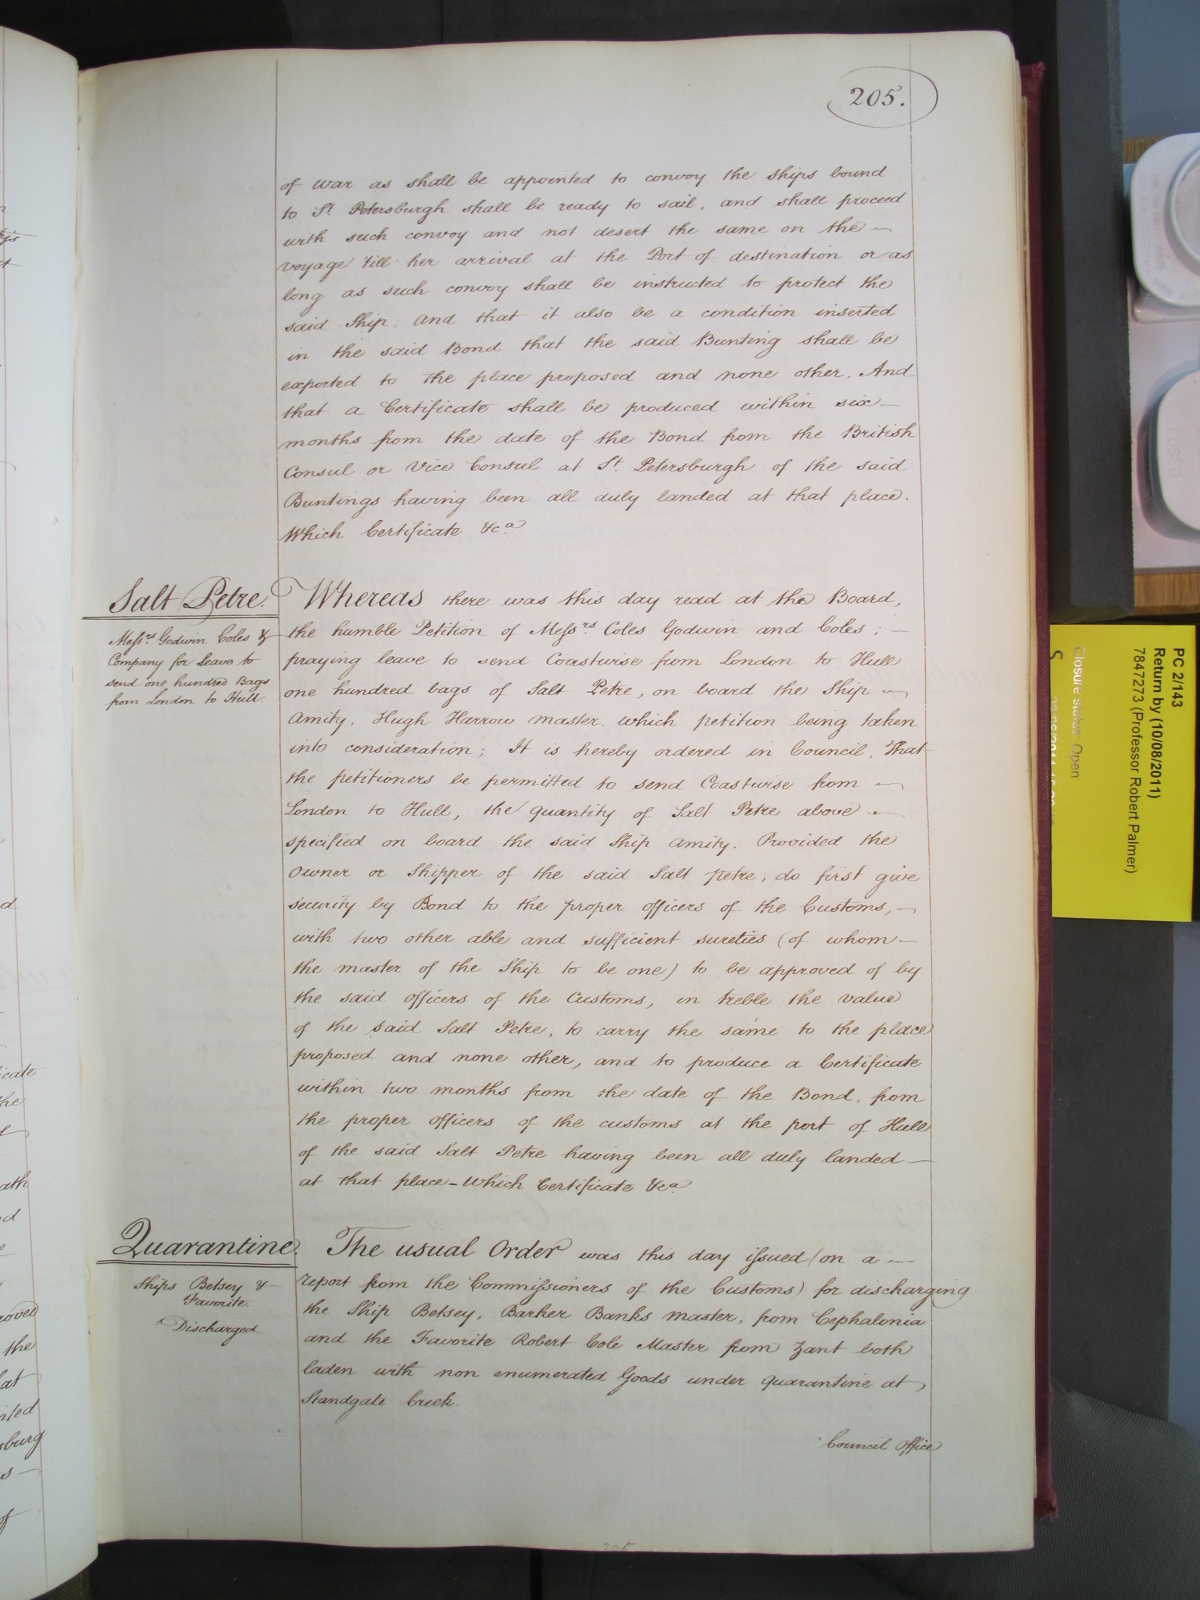 205.
of war as shall be appointed to convoy the ships bound
to St Petersburgh shall be ready to sail, and shall proceed
with such convoy and not desert the same on the
voyage till her arrival at the Port of destination or as
long as such convoy shall be instructed to protect the
said Ship. And that it also be a condition inserted
in the said Bond that the said Bunting shall be
exported to the place proposed and none other. And
that a Certificate shall be produced within six
months from the date of the Bond from the British
Consul or Vice Consul at St. Petersburgh of the said
Buntings having been all duly landed at that place.
Which Certificate &ca
Salt Petre.
Messrs Godwin Coles &
Company for Leave to
send one hundred Bags
from London to Hull.
Whereas there was this day read at the Board,
the humble Petition of Messrs Coles Godwin and Coles;
praying leave to send Coastwise from London to Hull
one hundred bags of Salt Petre, on board the Ship
Amity, Hugh Harrow master, which petition being taken
into consideration; It is hereby ordered in Council, That
the petitioners be permitted to send Coastwise from
London to Hull, the quantity of Salt Petre above
specified on board the said Ship Amity. Provided the
Owner or Shipper of the said Salt petre, do first give
security by Bond to the proper officers of the Customs,
with two other able and sufficient sureties (of whom
the master of the Ship to be one) to be approved of by
the said officers of the Customs, in treble the value
of the said Salt Petre, to carry the same to the place
proposed and none other, and to produce a Certificate
within two months from the date of the Bond, from
the proper officers of the customs at the port of Hull
of the said Salt Petre having been all duly landed
at that place – Which Certificate &ca
Quarantine.
Ships Betsey &
Favorite.
Discharged
The usual Order was this day issued (on a
report from the Commissioners of the Customs) for discharging
the Ship Betsey, Barker Banks master, from Cephalonia
and the Favorite Robert Cole Master from Zant both
laden with non enumerated Goods under quarantine at
Standgate Creek.
Council Office
PC 2/143
Return by (10/08/2011)
7847273 (Professor Robert Palmer)
Closure status: Open
S